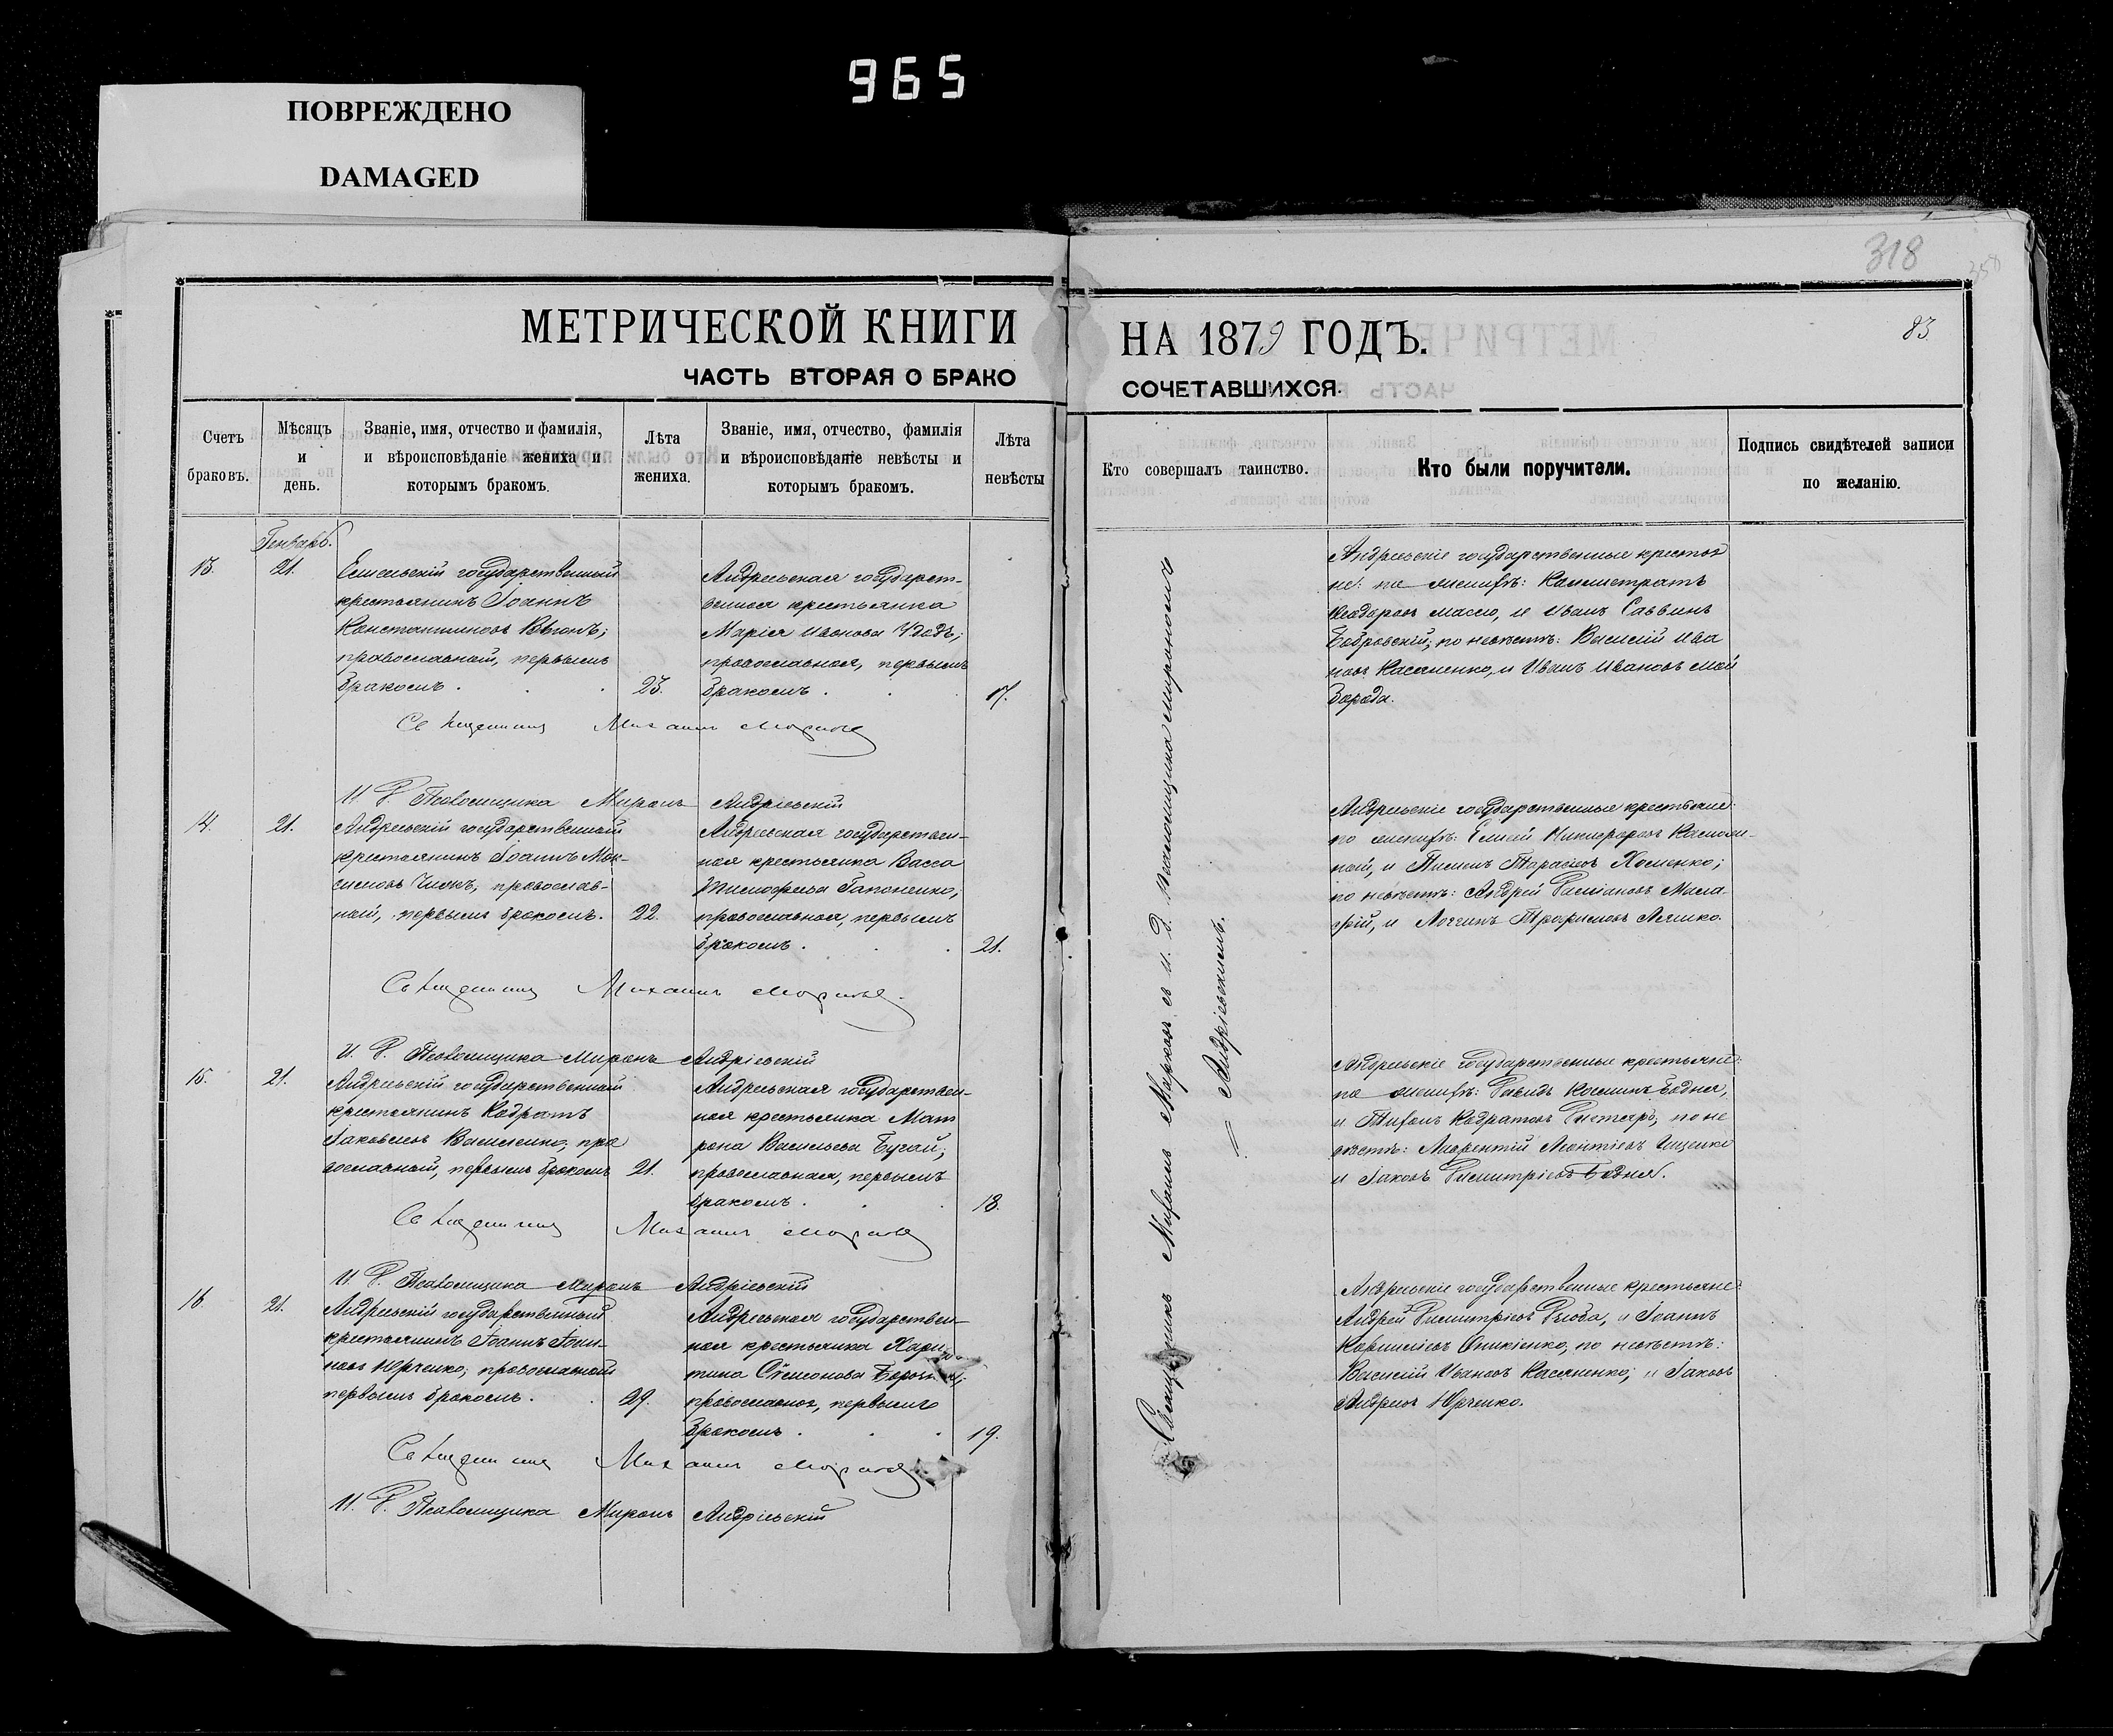 965
ПОВРЕЖДЕНО
DAMAGED
318
83
МЕТРИЧЕСКОЙ КНИГИ
ЧАСТЬ ВТОРАЯ О БРАКО
НА 1879 ГОДЪ.
СОЧЕТАВШИХСЯ.
Счетъ браковъ.
Мѣсяцъ и день.
Званіе, имя, отчество и фамилія, и вѣроисповѣданіе жениха и которымъ бракомъ.
Лѣта жениха.
Званіе, имя, отчество, фамилія и вѣроисповѣданіе невѣсты и которымъ бракомъ.
Лѣта невѣсты
Кто совершалъ таинство.
Кто были поручители.
Подпись свидѣтелей записи по желанію.
Генварь.
13.
21.
государственный
крестьянинъ Іоаннъ
Константиновъ
православный, первымъ
бракомъ.
23.
Андреевская государст-
венная крестьянка
Марія Иванова
православная, первымъ
бракомъ.
17.
Андреевскіе государственные крестья
не: по женихѣ: Каллистратъ
и Иванъ Саввинъ
Бобровскій; по невѣстѣ: Василій Ива
новъ Касяненко, и Иванъ Ивановъ Мой
борода.
Священникъ Михаилъ
И. Д. Псаломщика Миронъ Андріевскій
14.
21.
Андреевскій государственный
крестьянинъ Іоаннъ Мак-
симовъ православ-
ный, первымъ бракомъ.
22.
Андреевская государствен-
ная крестьянка Васса
Тимофеева Гапоненко,
православная, первымъ
бракомъ.
21.
Андреевскіе государственные крестьяне:
по женихѣ: Никифоровъ
и Тарасіевъ Хоменко;
по невѣстѣ: Андрей
и Логгинъ Трофимовъ Ляшко.
Священникъ Михаилъ
И. Д. Псаломщика Миронъ Андріевскій
15.
21.
Андреевскій государственный
крестьянинъ Кодратъ
Іаковлевъ Василенко, пра
вославный, первымъ бракомъ
21.
Андреевская государствен-
ная крестьянка Мат
рона Васильева Бугай;
православная, первымъ
бракомъ.
18.
Андреевскіе государственные крестьяне:
по женихѣ: Давидъ Косминъ Бодня,
и Кодратовъ по не
вѣстѣ: Лаврентій Леонтіевъ Ищенко
и Іаковъ Димитріевъ Бодня.
Священникъ Михаилъ
И. Д. Псаломщика Миронъ Андріевскій
16.
21.
Андреевскій государственный
крестьянинъ Іоаннъ Іоан-
новъ Юрченко, православный
первымъ бракомъ.
29.
Андреевская государствен-
ная крестьянка Хари
тина Симеонова
православная, первымъ
бракомъ.
19.
Андреевскіе государственные крестьяне:
Андрей Димитріевъ Дзюба, и Іоаннъ
Корниліевъ Оникіенко, по невѣстѣ:
Василій Ивановъ Касяненко; и Іаковъ
Андреевъ Юрченко.
Священникъ Михаилъ
И. Д. Псаломщика Миронъ Андріевскій
Священникъ Михаилъ Марковъ съ и. д. Псаломщика Мирономъ
Андріевскимъ.